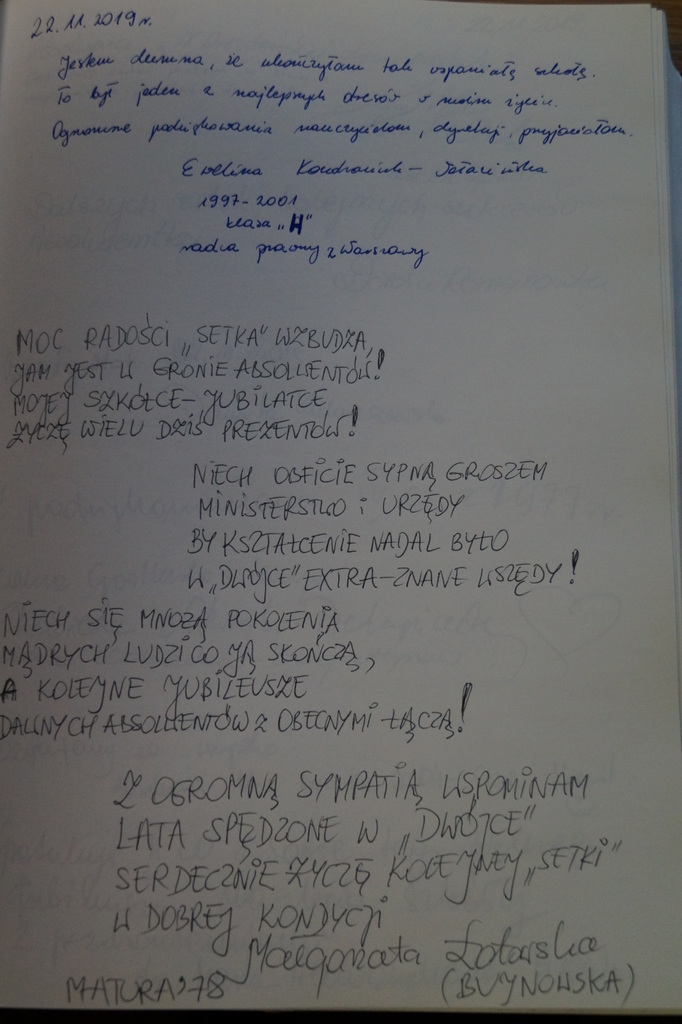 22.11.2019r.
Jestem dumna, że ukończyłam tak wspaniałą szkołę.
To był jeden z najlepszych okresów w moim życiu.
Ogromne podziękowania nauczycielom, dyrekcji, przyjaciołom.
Ewelina
1997-2001
klasa „H"
radca prawny z Warszawy
MOC RADOŚCI „SETKA" WZBUDZA,
JAM JEST W GRONIE ABSOLWENTÓW!
MOJEJ SZKÓŁCE - JUBILATCE
ŻYCZĘ WIELU DZIŚ PREZENTÓW!
NIECH OBFICIE SYPNĄ GROSZEM
MINISTERSTWO i URZĘDY
BY KSZTAŁCENIE NADAL BYŁO
W „DWÓJCE" EXTRA-ZNANE WSZĘDY!
NIECH SIĘ MNOŻĄ POKOLENIA
MĄDRYCH LUDZI CO JĄ SKOŃCZĄ,
A KOLEJNE JUBILEUSZE
DAWNYCH ABSOLWENTÓW Z OBECNYMI ŁĄCZĄ!
Z OGROMNĄ SYMPATIĄ WSPOMINAM
LATA SPĘDZONE W „DWÓJCE"
SERDECZNIE ŻYCZĘ KOLEJNEJ „SETKI"
W DOBREJ KONDYCJI
Małgorzata
(BUJNOWSKA)
MATURA'78